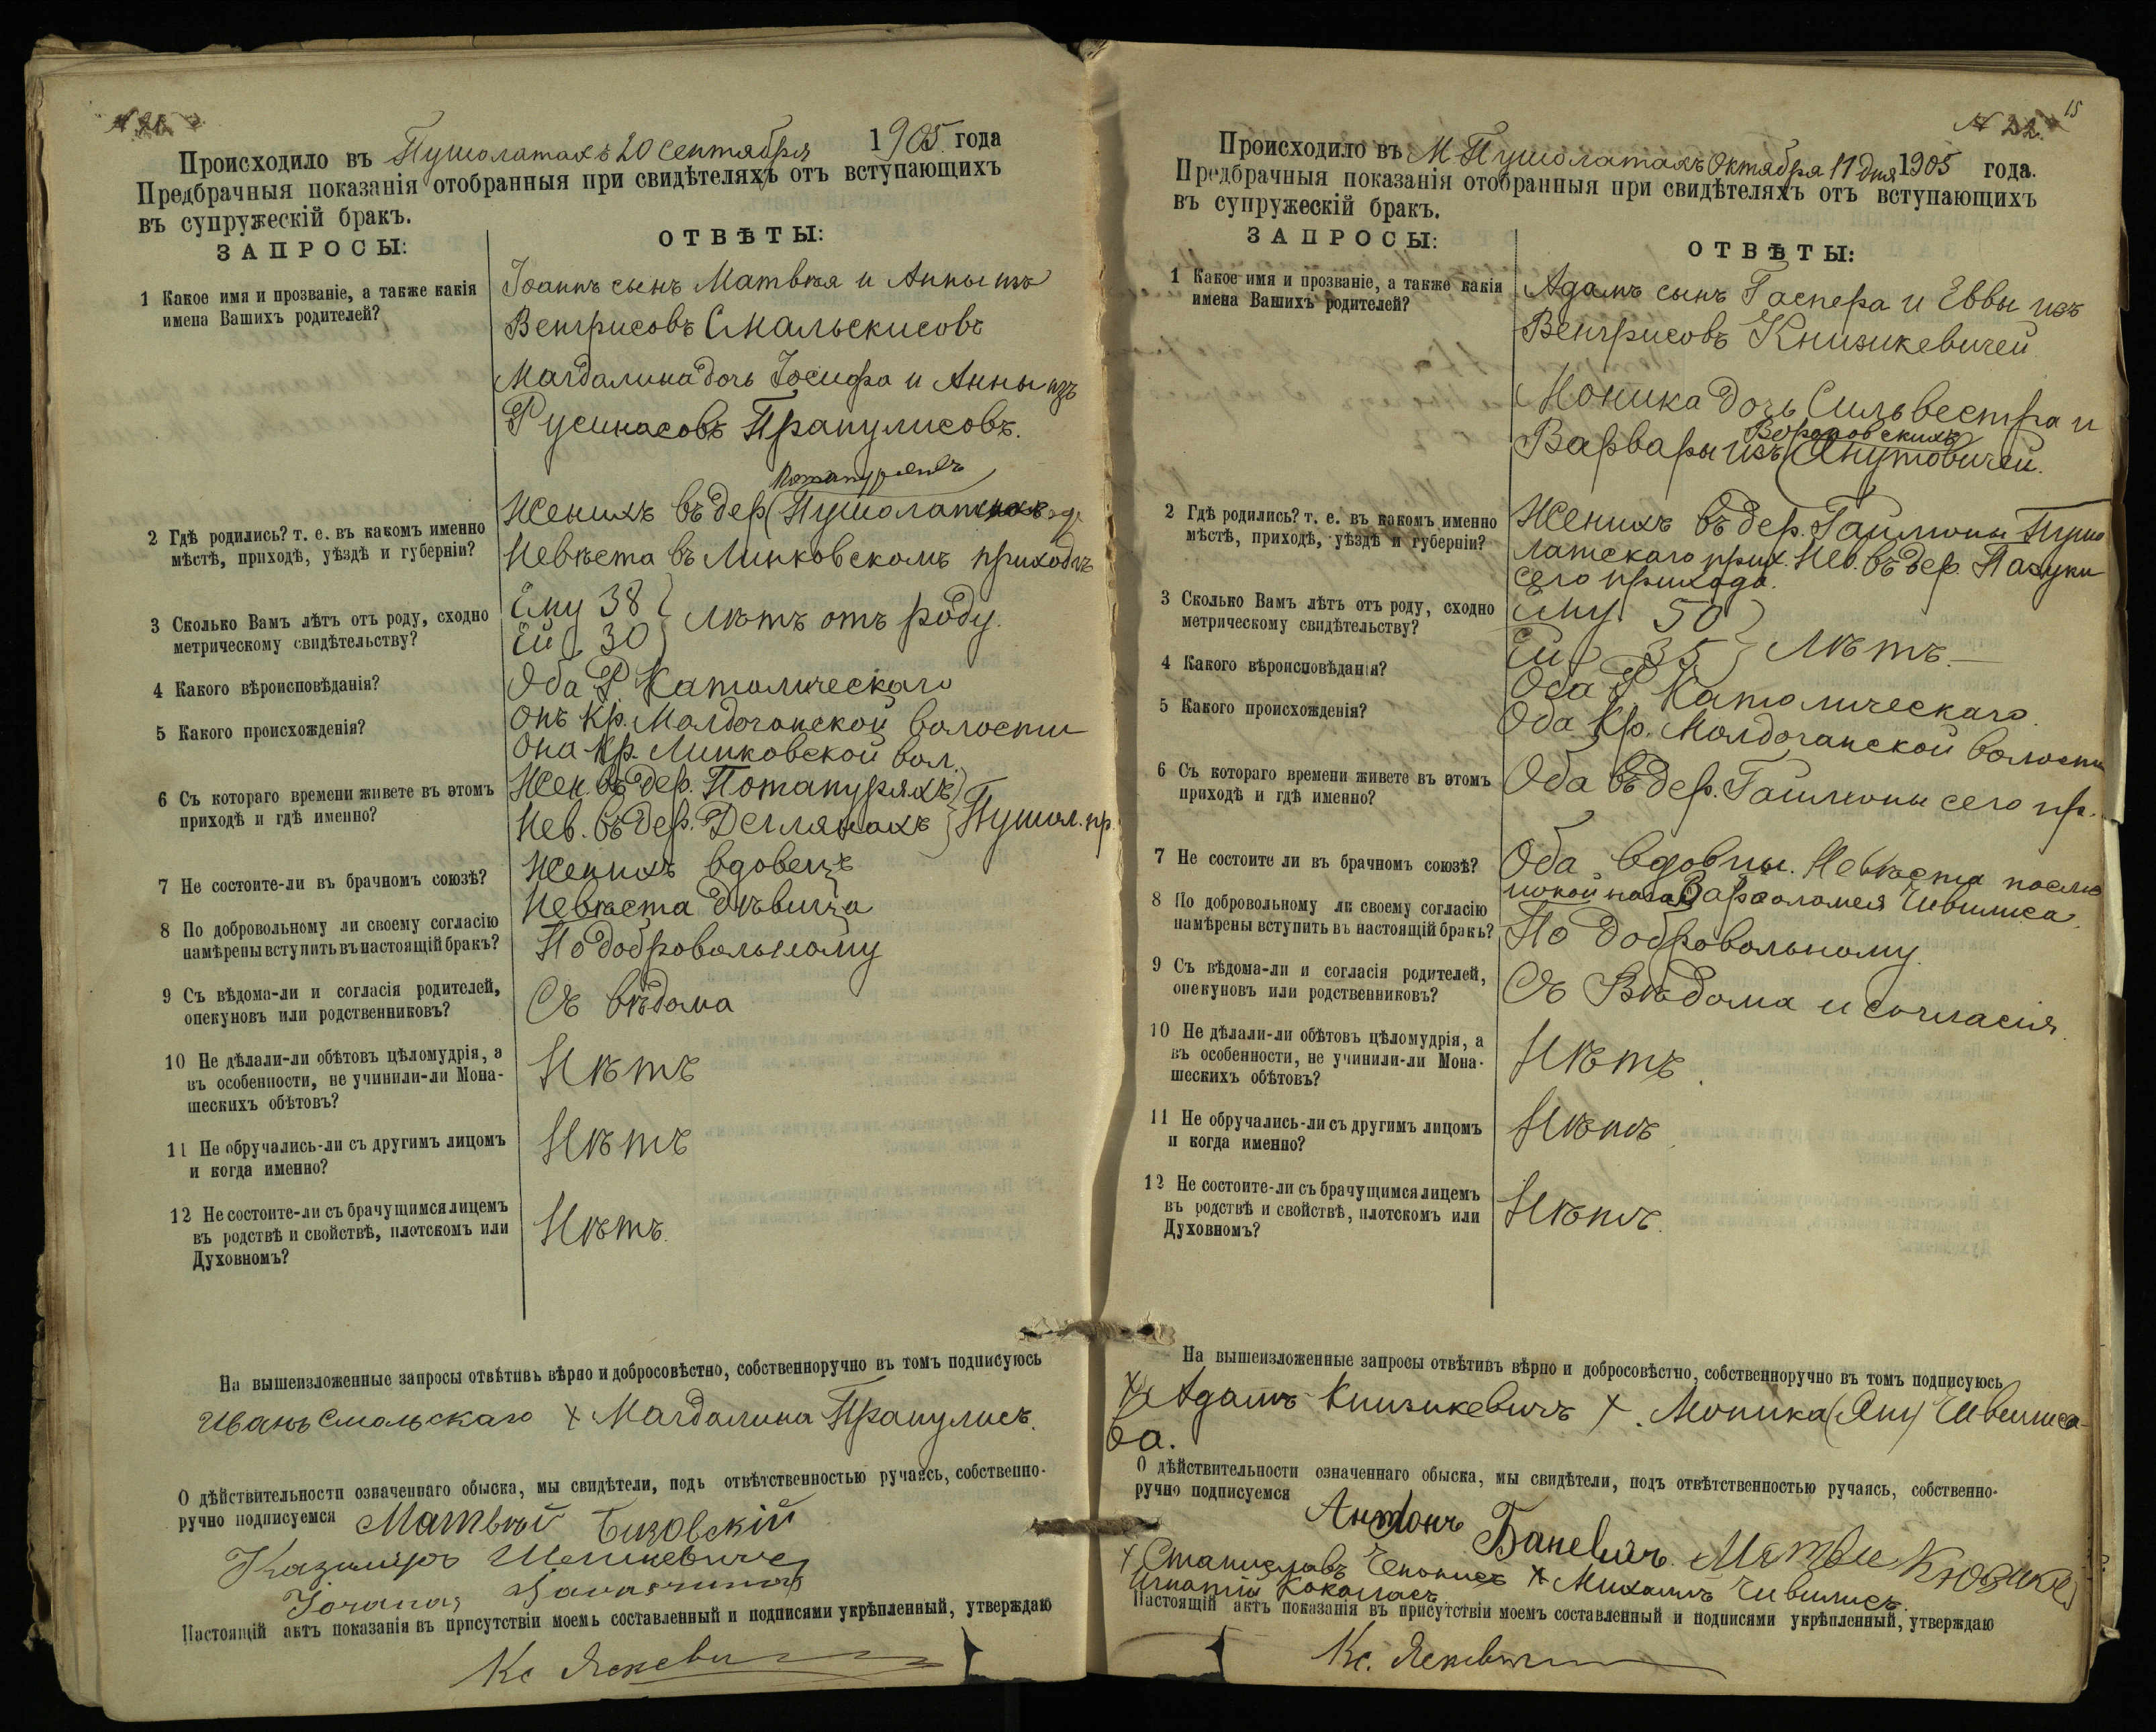 Происходило въ Пушолатахъ 20 Сентября 1905 года
Предбрачныя показанія отобранныя при свидѣтеляхъ отъ вступающихъ
въ супружескій бракъ.
ЗАПРОСЫ:
ОТВѢТЫ:
1 Какое имя и прозваніе, а также какія
имена Вашихъ родителей?
Іоаннъ сынъ Матвѣя и Анны изъ
Венгрисовъ Смальскисовъ
Магдалина дочь Іосифа и Анны изъ
Русинасовъ Прапулисовъ.
2 Гдѣ родились? т. е. въ какомъ именно
мѣстѣ, приходѣ, уѣздѣ и губерніи?
Женихъ въ дер (Пушолатахъ
Невѣста въ Линковскомъ приходѣ
3 Сколько Вамъ лѣтъ отъ роду, сходно
метрическому свидѣтельству?
Ему 38
Ей 30 } лѣтъ отъ роду.
4 Какого вѣроисповѣданія?
Оба Р. Католическаго
5 Какого происхожденія?
Онъ Кр. Малдочанской волости
Она Кр. Линковской вол.
6 Съ котораго времени живете въ этомъ
приходѣ и гдѣ именно?
Жен. въ дер. Потапуряхъ
Нев. въ дер. Деглянахъ } Пушол. пр.
7 Не состоите-ли въ брачномъ союзѣ?
Женихъ вдовецъ
Невѣста дѣвица
8 По добровольному ли своему согласію
намѣрены вступить въ настоящій бракъ?
По добровольному
9 Съ вѣдома-ли и согласія родителей,
опекуновъ или родственниковъ?
Съ вѣдома
10 Не дѣлали-ли обѣтовъ цѣломудрія, а
въ особенности, не учинили-ли Мона-
шескихъ обѣтовъ?
Нѣтъ
11 Не обручались-ли съ другимъ лицомъ
и когда именно?
Нѣтъ
12 Не состоите-ли съ брачущимся лицемъ
въ родствѣ и свойствѣ, плотскомъ или
Духовномъ?
Нѣтъ.
На вышеизложенные запросы отвѣтивъ вѣрно и добросовѣстно, собственноручно въ томъ подписуюсь
Иванъ Смольскаго + Магдалина Прапулисъ.
О дѣйствительности означеннаго обыска, мы свидѣтели, подъ отвѣтственностью ручаясь, собственно-
ручно подписуемся Матвѣй Бизовскій
Казиміръ
Настоящій актъ показанія въ присутствіи моемъ составленный и подписями укрѣпленный, утверждаю
Кс
15
№ 22.
Происходило въ М Пушолатахъ Октября 11 дня 1905 года.
Предбрачныя показанія отобранныя при свидѣтеляхъ отъ вступающихъ
въ супружескій бракъ.
ЗАПРОСЫ:
ОТВѢТЫ:
1 Какое имя и прозваніе, а также какія
имена Вашихъ родителей?
Адамъ сынъ Гаспера и Еввы изъ
Венгрисовъ Книзикевичей
Моника дочь Сильвестра и
Варвары изъ (Янутовичей.
2 Гдѣ родились? т. е. въ какомъ именно
мѣстѣ, приходѣ, уѣздѣ и губерніи?
Женихъ въ дер. Гайлюны Пушо
латскаго прих. Нев. въ дер. Пажуки
сего прихода.
3 Сколько Вамъ лѣтъ отъ роду, сходно
метрическому свидѣтельству?
Ему 50
Ей 35 } Лѣтъ.
4 Какого вѣроисповѣданія?
Оба Р Католическаго.
5 Какого происхожденія?
Оба Кр. Малдочанской волости
6 Съ котораго времени живете въ этомъ
приходѣ и гдѣ именно?
Оба въ дер. Гайлюны сего пр.
7 Не состоите ли въ брачномъ союзѣ?
Оба вдовцы. Невѣста послѣ
покойнаго Варѳоломея Чивилиса.
8 По добровольному ли своему согласію
намѣрены вступить въ настоящій бракъ?
По добровольному.
9 Съ вѣдома-ли и согласія родителей,
опекуновъ или родственниковъ?
Съ Вѣдома и согласія.
10 Не дѣлали-ли обѣтовъ цѣломудрія, а
въ особенности, не учинили-ли Мона-
шескихъ обѣтовъ?
Нѣтъ.
11 Не обручались-ли съ другимъ лицомъ
и когда именно?
Нѣтъ.
12 Не состоите-ли съ брачущимся лицемъ
въ родствѣ и свойствѣ, плотскомъ или
Духовномъ?
Нѣтъ.
На вышеизложенные запросы отвѣтивъ вѣрно и добросовѣстно, собственноручно въ томъ подписуюсь
+ Адамъ Книзикевичъ + Моника (Яну) Чивилисо-
ва.
О дѣйствительности означеннаго обыска, мы свидѣтели, подъ отвѣтственностью ручаясь, собственно-
ручно подписуемся Антонъ Баневичъ.
+ Станиславъ + Михаилъ Чивилисъ.
Игнатій Кокаласъ
Настоящій актъ показанія въ присутствіи моемъ составленный и подписями укрѣпленный, утверждаю
Кс.